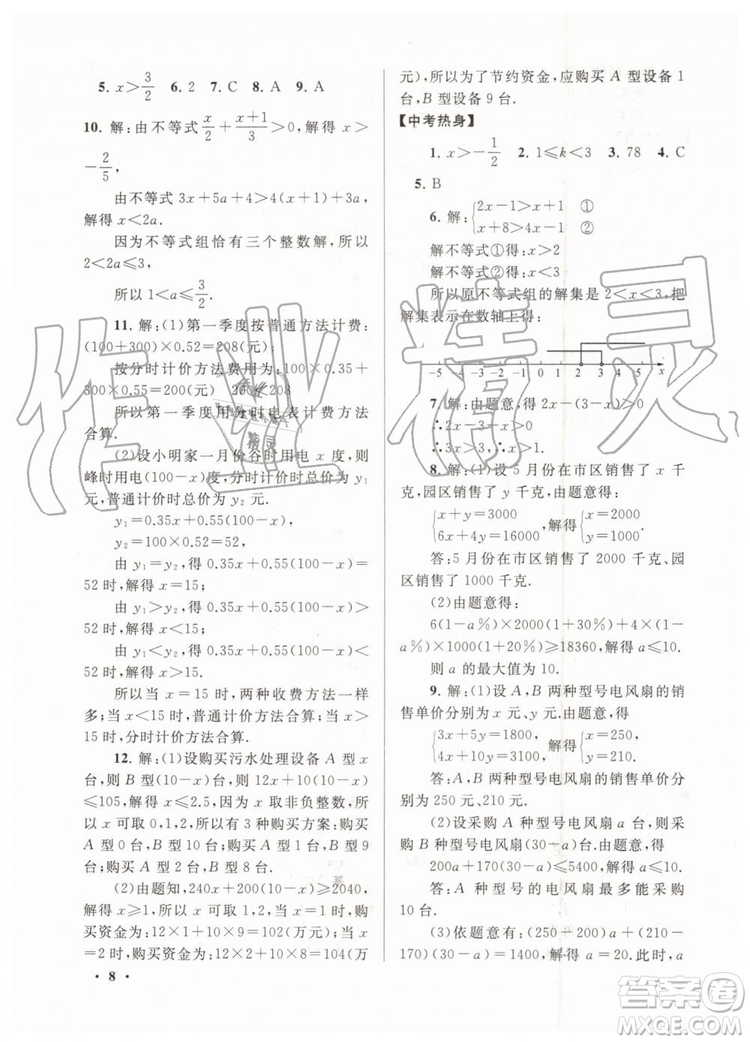 5. x>3/2 6. 2 7. C 8. A 9. A
10. 解:由不等式 x/2+(x+1)/3>0,解得 x>
-2/5,
由不等式 3x+5a+4>4(x+1)+3a,
解得 x<2a.
因为不等式组恰有三个整数解,所以
2<2a≤3,
所以 1<a≤3/2.
11. 解:(1)第一季度按普通方法计费:
(100+300)×0.52=208(元);
按分时计价方法费用为:100×0.35+
300×0.55=200(元) 200<208
所以第一季度用分时电表计费方法
合算.
(2)设小明家一月份谷时用电 x 度,则
峰时用电(100-x)度,分时计价时总价为 y₁
元;普通计价时总价为 y₂ 元.
y₁=0.35x+0.55(100-x)
y₂=0.52×100=52
由 y₁=y₂,得 0.35x+0.55(100-x)=
52 时,解得 x=15;
由 y₁>y₂,得 0.35x+0.55(100-x)>
52 时,解得 x<15;
由 y₁<y₂,得 0.35x+0.55(100-x)<
52 时,解得 x>15.
所以当 x=15 时,两种收费方法一样
多;当 x<15 时,普通计价方法合算;当 x>15
时,分时计价方法合算.
12. 解:(1)设购买污水处理设备 A 型 x
台,则 B 型(10-x)台,则 12x+10(10-x)
≤105,解得 x≤2.5,因为 x 取非负整数,所
以 x 可取 0,1,2,所以有 3 种购买方案:购买
A 型 0 台,B 型 10 台;购买 A 型 1 台,B 型 9
台;购买 A 型 2 台,B 型 8 台.
(2)由题知,240x+200(10-x)≥2040,
解得 x≥1,所以 x 取 1 或 2,当 x=1 时,购
买资金为:12×1+10×9=102(万元),当 x
=2 时,购买资金为:12×2+10×8=104(万
• 8 •
元),所以为了节约资金,应购买 A 型设备 1
台,B 型设备 9 台.
【中考热身】
1. x>-1/2 2. 1≤k<3 3. 78 4. C
5. B
6. 解:{2x-1>x+1 ①
x+8>4x-1 ②
解不等式①得:x>2
解不等式②得:x<3
所以原不等式组的解集是 2<x<3,把
解集表示在数轴上得:
-5 -4 -3 -2 -1 0 1 2 3 4 5 x
7. 解:由题意得 2x-(3-x)>0
∴3x>3,∴x>1.
8. 解:(1)设 5 月份在市区销售了 x 千
克,园区销售了 y 千克,由题意得:
{x+y=3000
6x+4y=16000,解得{x=2000
y=1000
答:5 月份在市区销售了 2000 千克、园
区销售了 1000 千克.
(2)由题意得:
6(1-a%)×2000(1+30%)+4×(1-
a%)×1000(1+20%)≥18360,解得 a≤10.
则 a 的最大值为 10.
9. 解:(1)设 A,B 两种型号电风扇的销
售单价分别为 x 元、y 元,由题意得:
{3x+5y=1800
4x+10y=3100,解得{x=250
y=210
答:A、B 两种型号电风扇的销售单价分
别为 250 元、210 元.
(2)设采购 A 种型号电风扇 a 台,则采
购 B 种型号电风扇(30-a)台,由题意得:
200a+170(30-a)≤5400,解得 a≤10.
答:A 种型号的电风扇最多能采购
10 台.
(3)依题意有:(250-200)a+(210-
170)(30-a)=1400,解得 a=20.此时,a
作业精灵
作业精灵
答案圈
MXQE.COM